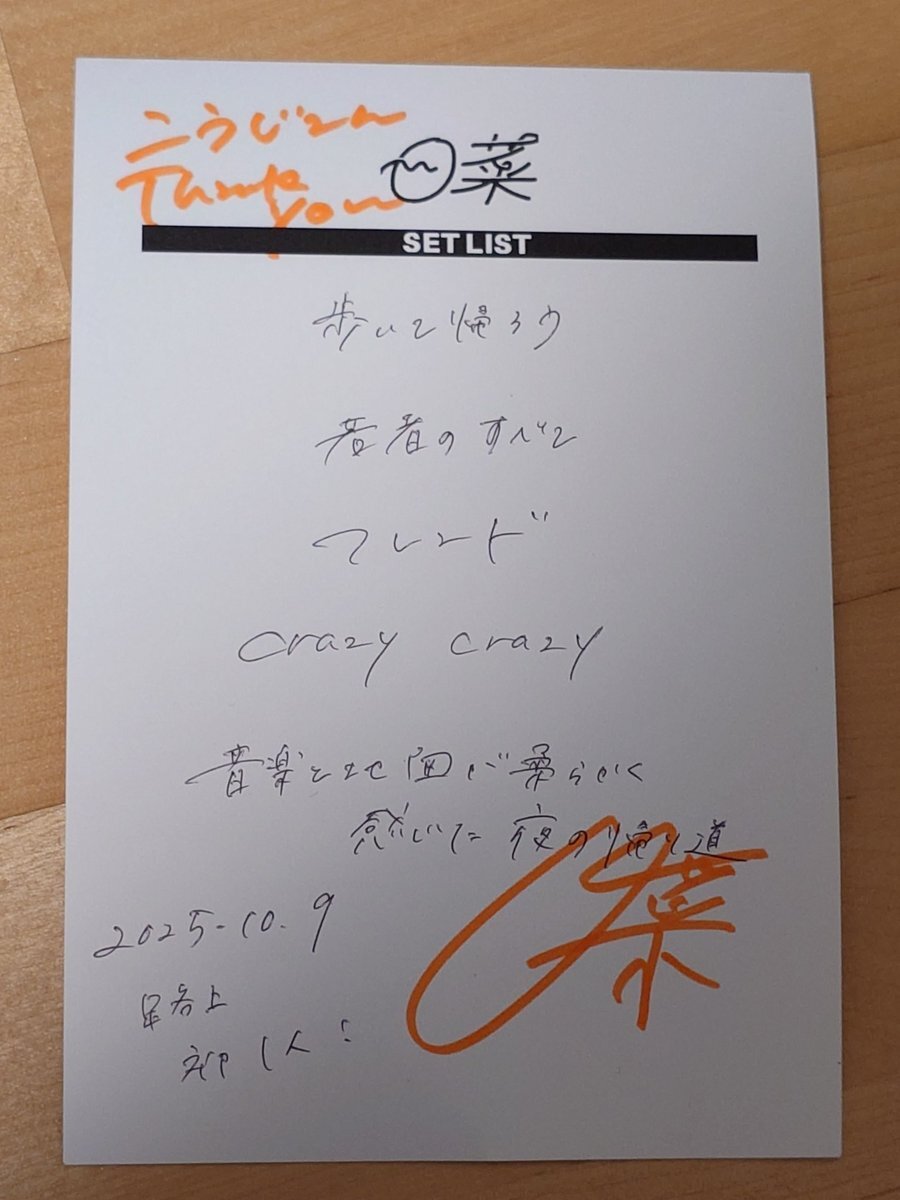 こうじさん
Thank you
菜
SET LIST
歩いて帰ろう
若者のすべて
フレンド
crazy crazy
音楽と世間が柔らかく
感じた夜の帰り道
2025.10.9
路上
菜